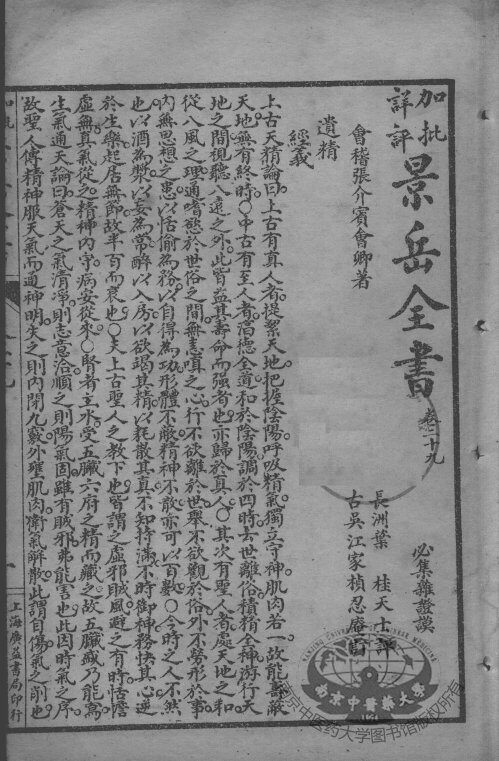 加批詳評景岳全書 卷二十九 必集雜證謨
會稽張介賓會卿著 長洲葉 桂天士評
古吳江家楨忍庵
遺精
經義
上古天真論曰上古有真人者提挈天地把握陰陽呼吸精氣獨立守神肌肉若一故能壽敝
天地無有終時〇中古有至人者淳德全道和於陰陽調於四時去世離俗積精全神游行天
地之間視聽八遠之外此皆益其壽命而強者也亦歸於真人〇其次有聖人者處天地之和
從八風之理適嗜慾於世俗之間無恚嗔之心行不欲離於世舉不欲觀於俗外不勞形於事
內無思想之患以恬愉為務以自得為功形體不敝精神不散亦可以百數〇今時之人不然
也以酒為漿以妄為常醉以入房以欲竭其精以耗散其真不知持滿不時御神務快其心逆
於生樂起居無節故半百而衰也〇夫上古聖人之教下也皆謂之虛邪賊風避之有時恬憺
虛無真氣從之精神內守病安從來〇腎者主水受五臟六府之精而藏之故五臟盛乃能寫
生氣通天論曰蒼天之氣清淨則志意治順之則陽氣固雖有賊邪弗能害也此因時氣之序
故聖人傳精神服天氣而通神明失之則內閉九竅外壅肌肉衛氣解散此謂自傷氣之削也
上海廣益書局印行
南京中醫藥大學
NANJING UNIVERSITY OF CHINESE MEDICINE
南京中医药大学图书馆版权所有